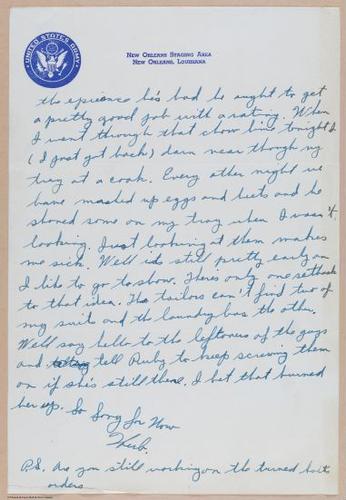 UNITED STATES ARMY
NEW ORLEANS STAGING AREA
NEW ORLEANS, LOUISIANA
the eprience he's had he ought to get
a pretty good job with a rating. When
I went through that chow line tonight
(I just got back) darn near though my
tray at a cook. Every other night we
have mashed up eggs and beets and he
shoved some on my tray when I wasn't
looking. Just looking at them makes
me sick. Well its still pretty early so
I like to go to show. Theres only one setback
to that idea. The tailors can't find two of
my suits and the laundry has the other.
Well say hello to the leftovers of the guys
and tell Ruby to keep screwing them
on if she's still there. I bet that burned
her up. So Long for Now
Herb.
P.S. Are you still working on the turned
orders